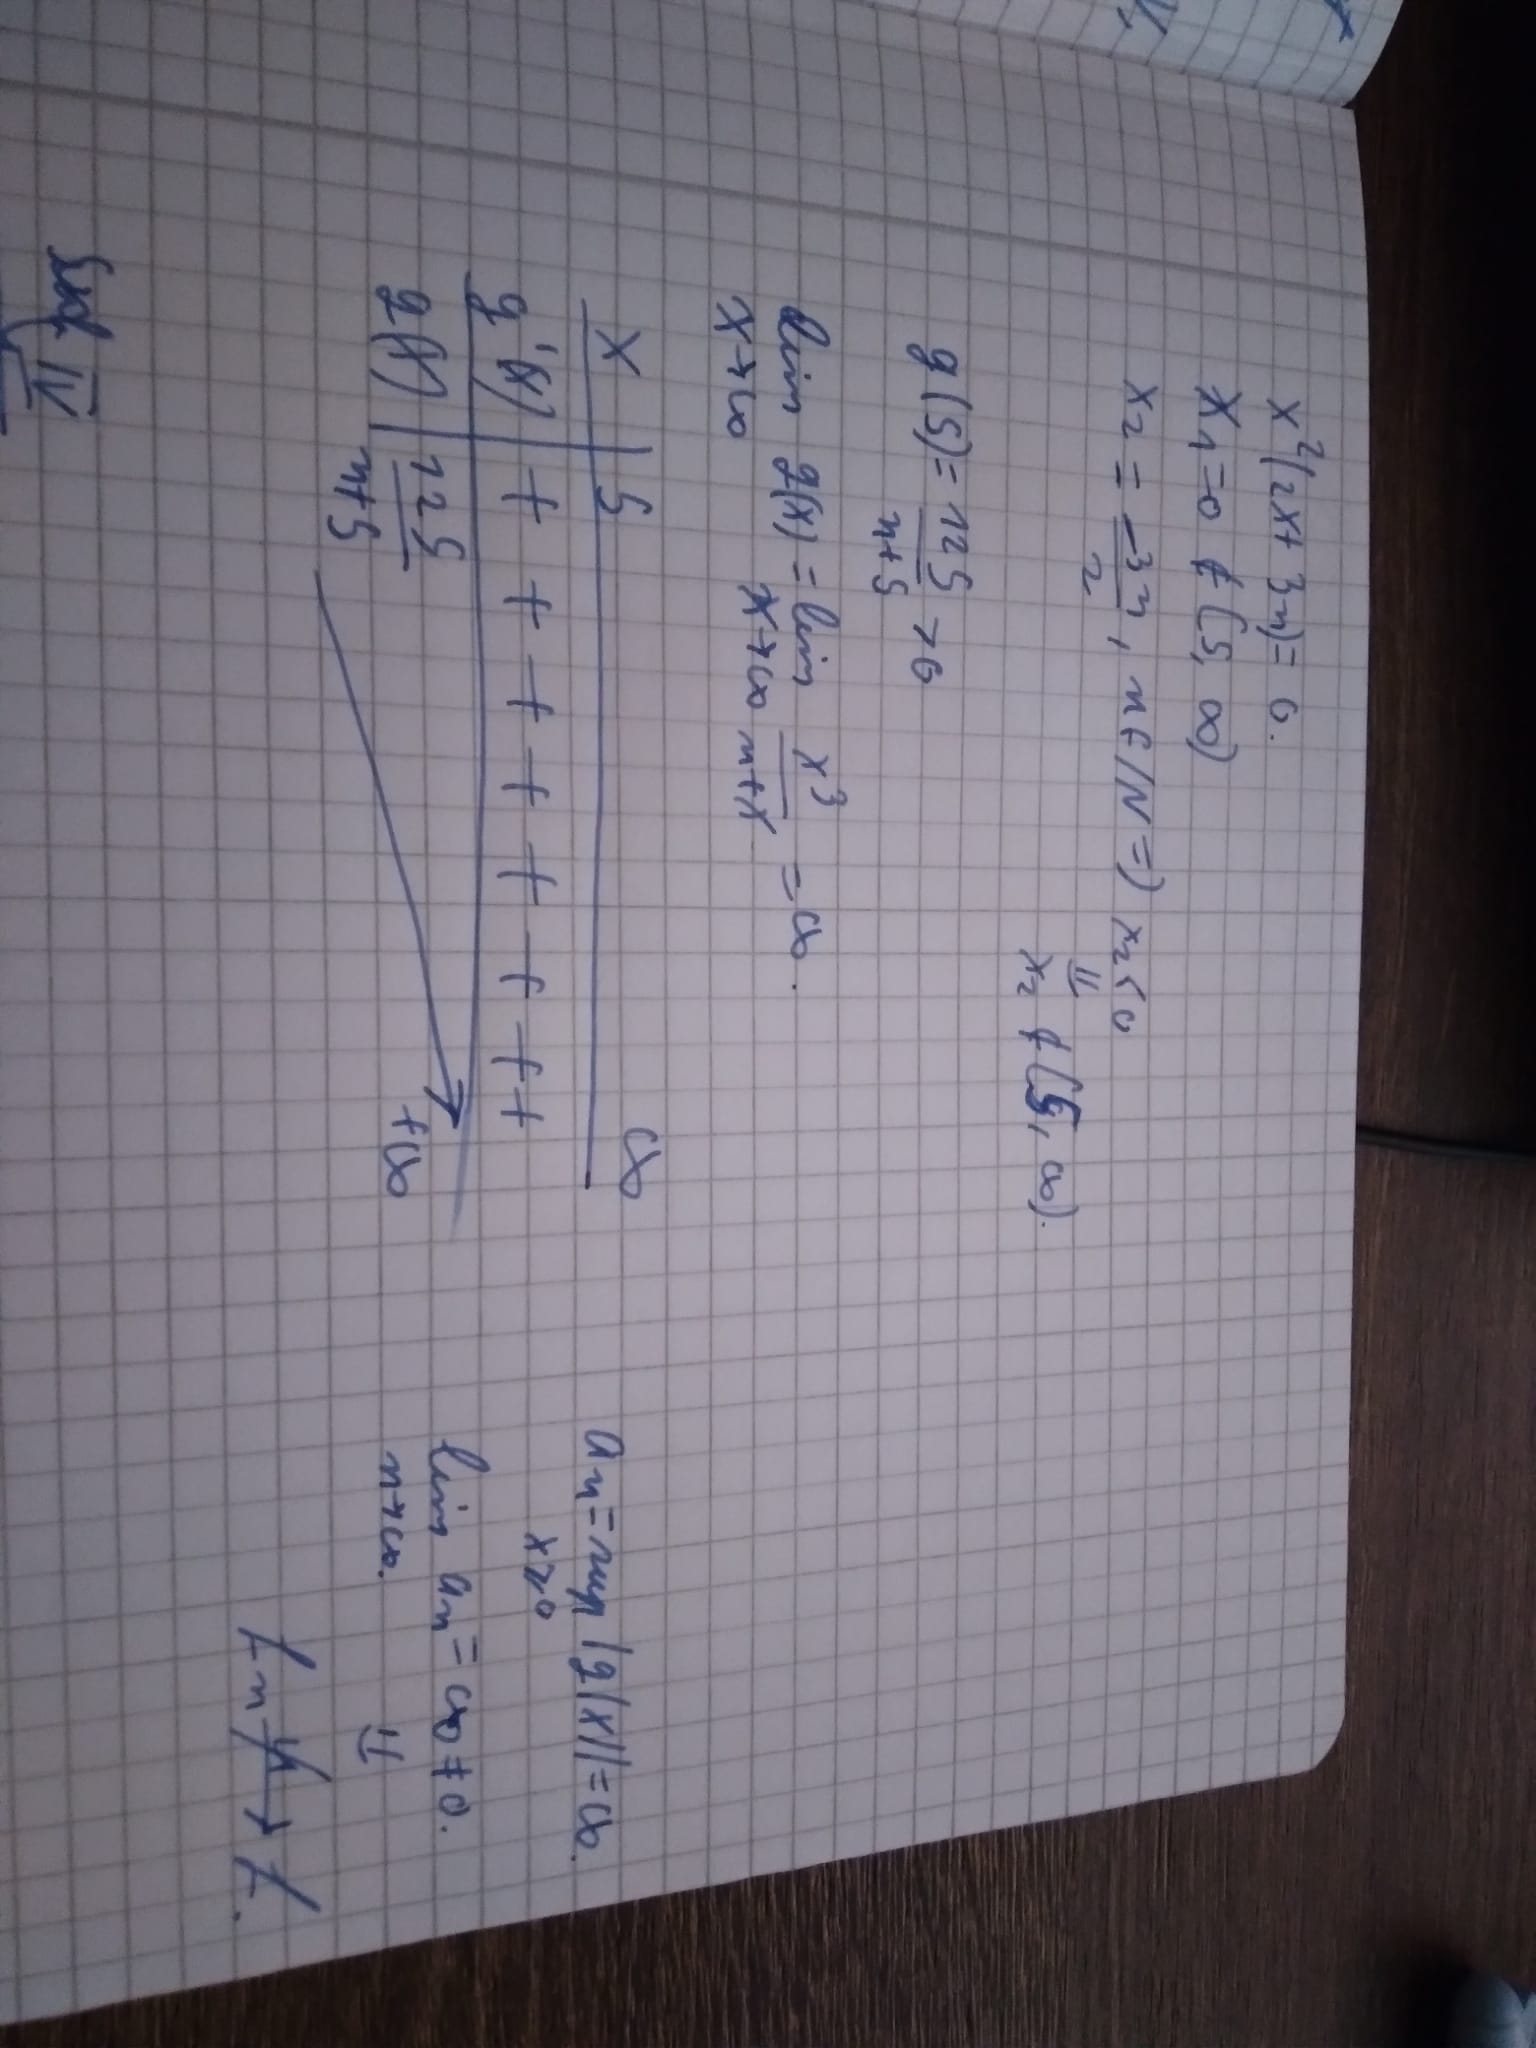 x²(2x+3n)=0.
x₁=0 ∉ (5, ∞)
x₂ = -3n/2, n∈ℕ ⇒ x₂<0
⇓
x₂ ∉ (5, ∞).
g(5)= 125/(n+5) >0
lim x→∞ g(x) = lim x→∞ x³/(n+x) = ∞.
x | 5 ∞
g'(x) | + + + + + + + +
g(x) | 125/(n+5) +∞
aₙ= sup x≥0 |g(x)|=∞.
lim n→∞. aₙ= ∞≠0.
⇓
fₙ u↛ f.
IV